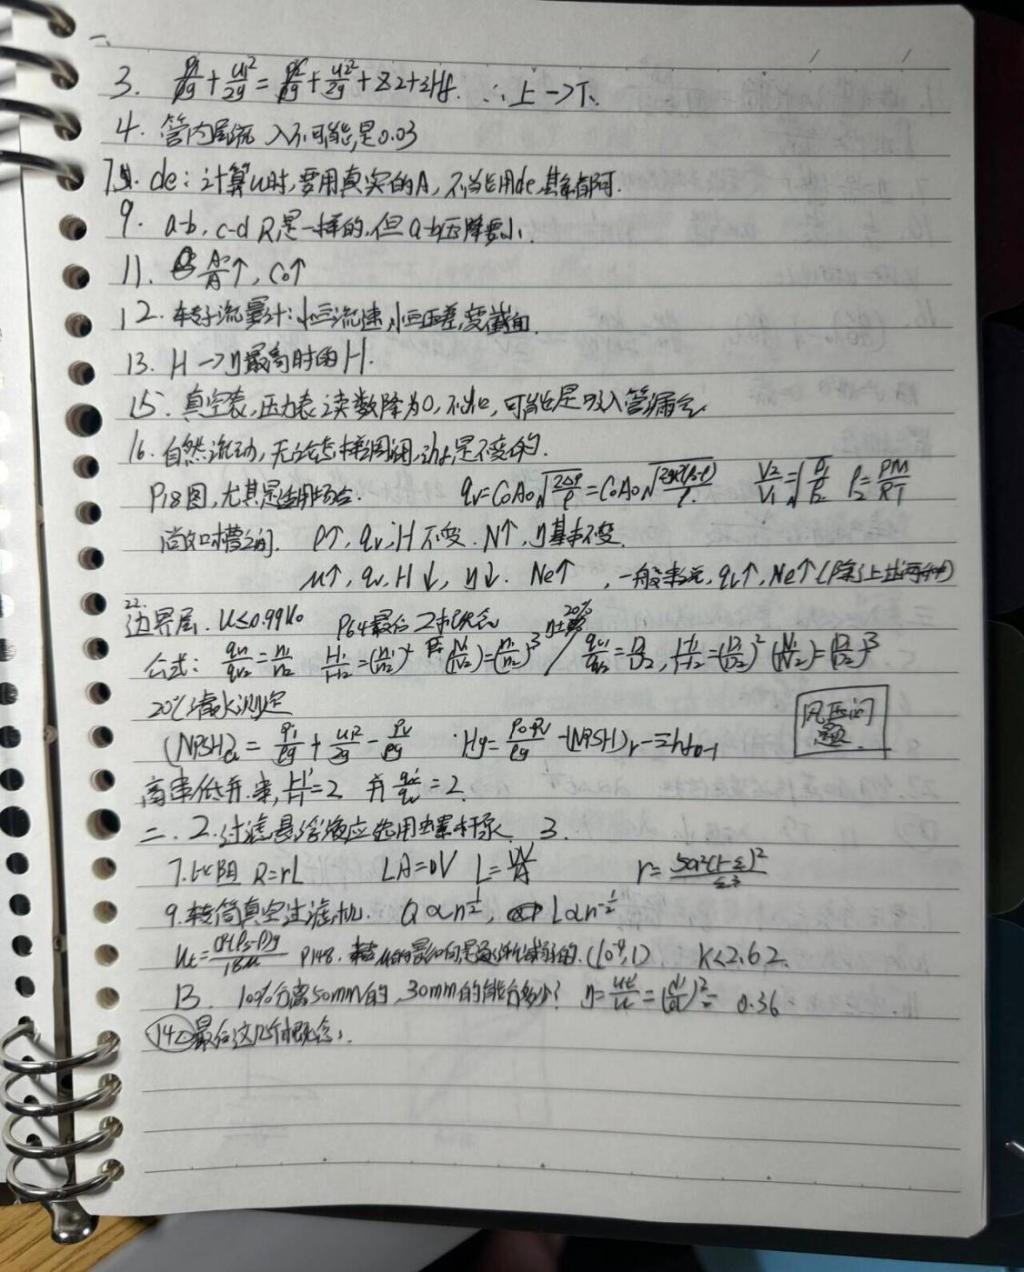 一、
3. P1/ρg + u1²/2g = P2/ρg + u2²/2g + Z2 + ΣHf. ∴上->下.
4. 管内层流 λ不可能是0.03
7. de：计算u时,要用真实的A, 不能用de,其余都可.
9. a-b, c-d R是一样的,但a-b压降要小.
11. A0/A↑, C0↑
12. 转子流量计：恒流速,恒压差,变截面.
13. H ->η最高时的H.
15. 真空表,压力表读数降为0, 可能是吸入管漏气
16. 自然流动,无论怎样调阀,Σhf是不变的.
P18图,尤其是适用场合. qv=C0A0√(2ΔP/ρ)=C0A0√(2gR(ρi-ρ)/ρ) V2/V1=√(ρ1/ρ2) ρ=PM/RT
尚如口槽之间. ρ↑, qv,H不变. N↑, η基本不变.
μ↑, qv, H↓, η↓. Ne↑ , 一般来说, qv↑, Ne↑(除了上述两种)
22.
边界层. u≤0.99u0 P64最后2个概念
20%
公式： qv1/qv2=n1/n2 H1/H2=(n1/n2)² (N1/N2)=(n1/n2)³ / qv1/qv2=D1/D2, H1/H2=(D1/D2)² (N1/N2)=(D1/D2)³
20℃清水测定
(NPSH)a = P1/ρg + u1²/2g - Pv/ρg . Hg=(P0-Pv)/ρg -(NPSH)r-Σhf0-1
风压问题
高串低并. 串, H'/H=2 并 qv'/qv=2.
二. 2. 过滤悬浮液应选用螺杆泵 3.
7. 比阻 R=rL LA=υV L=υV/A r=5a²(1-ε)²/ε³
9. 转筒真空过滤机. Q∝n^½, L∝n^-½
ut=d²(ρs-ρ)g/18μ P148. (10⁻⁴,1) K<2.62.
13. 100%分离50mm的,30mm的能分多少? η=ut'/ut=(d'/d)²= 0.36
14. 最后这几个概念.